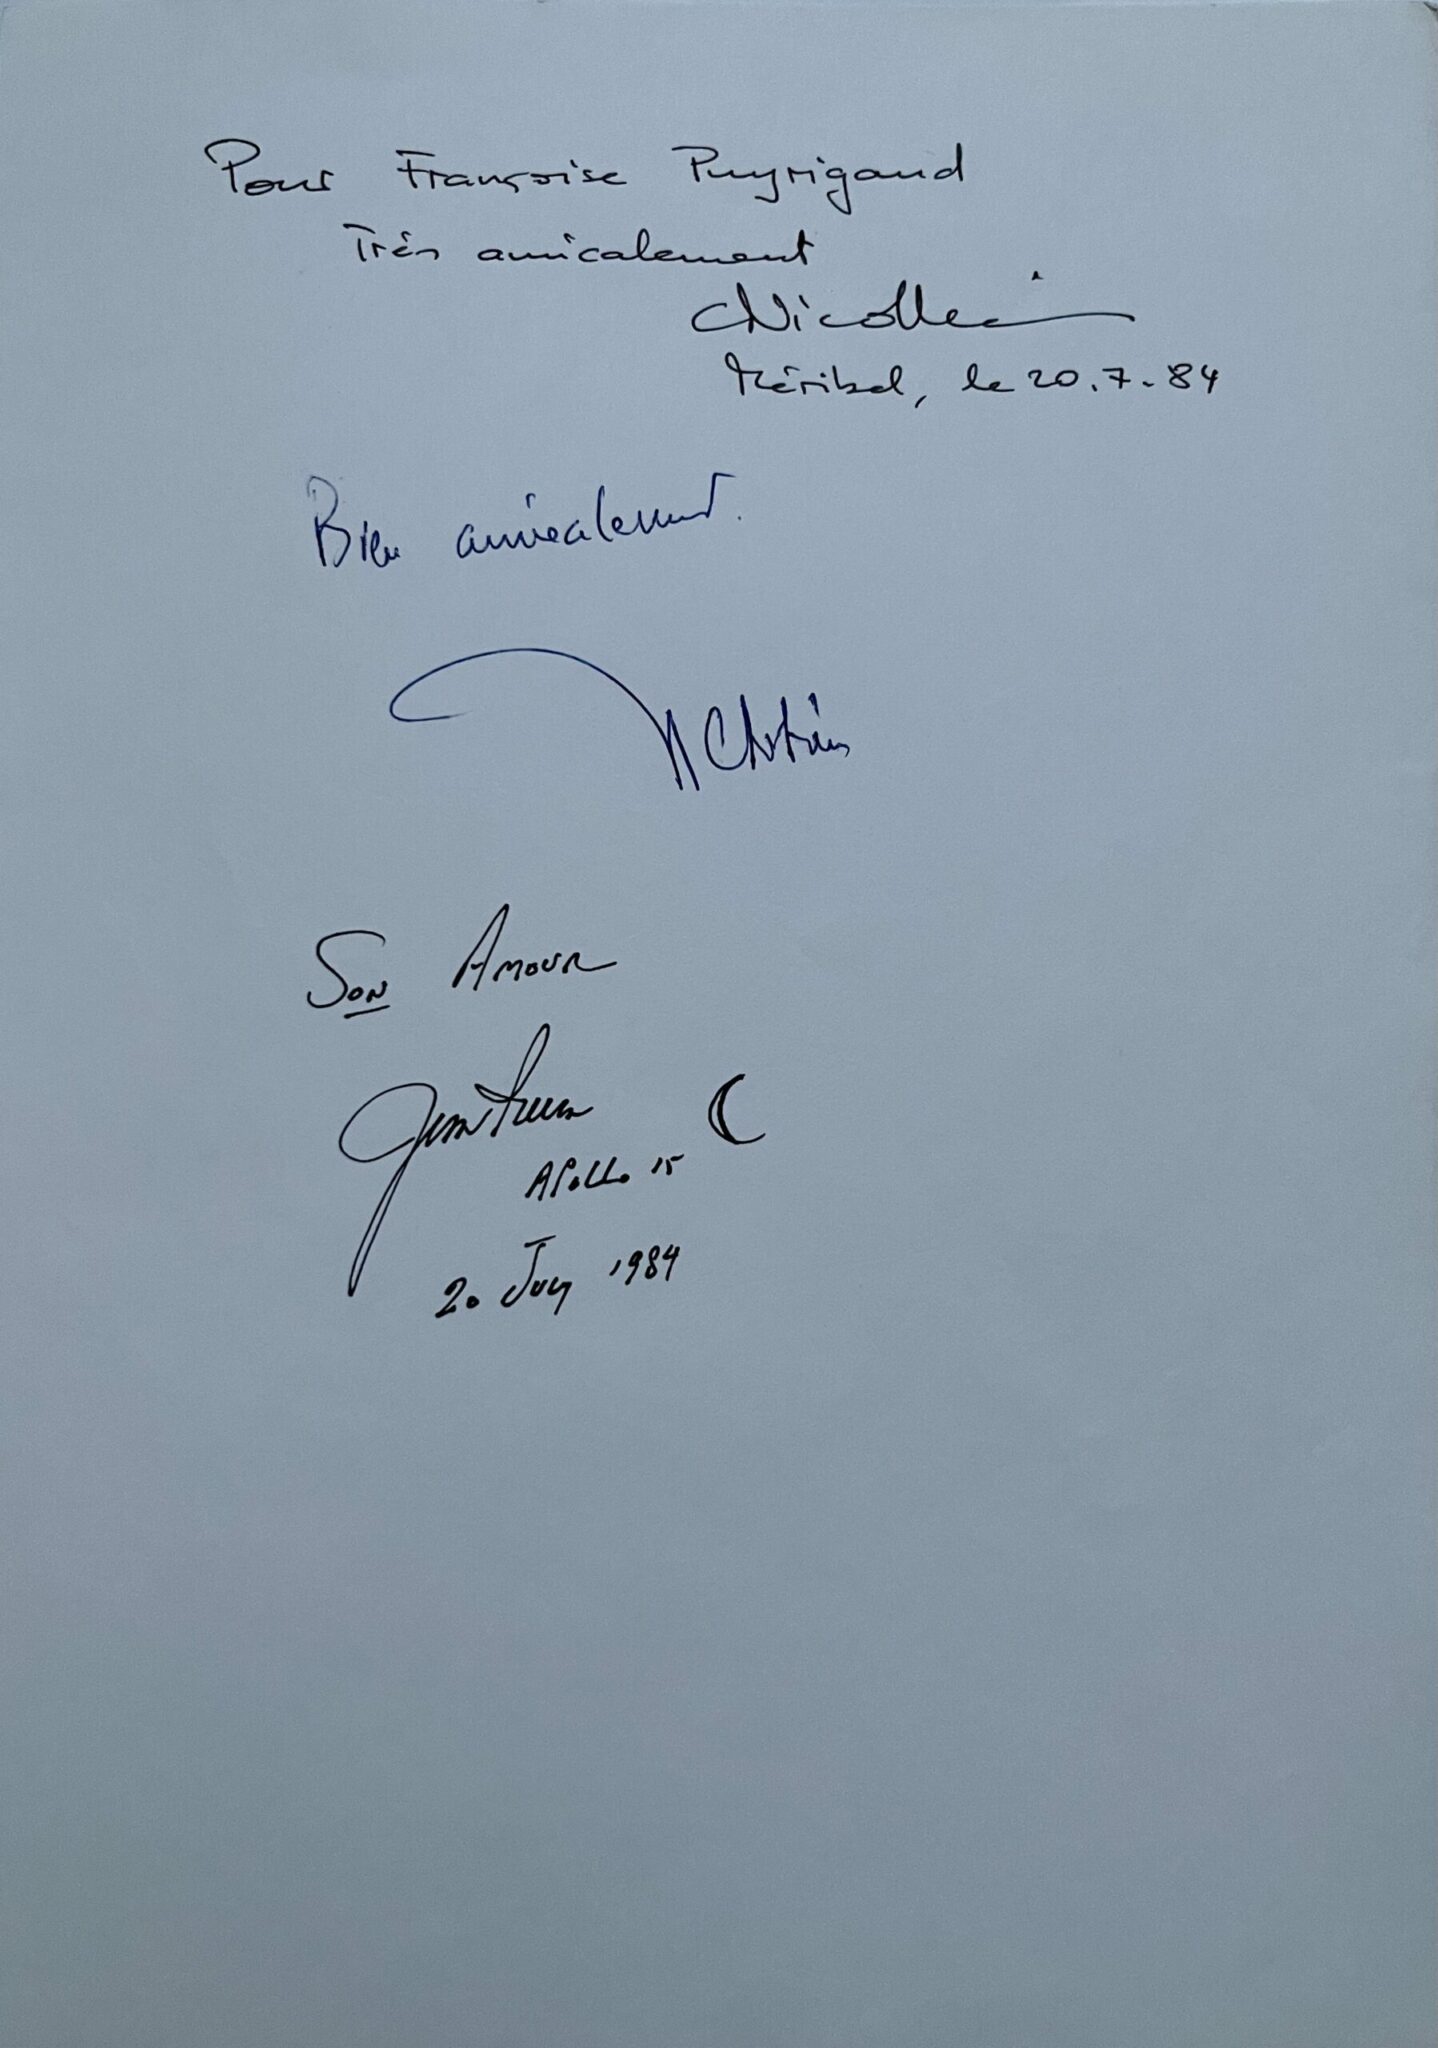 Pour Françoise Puyrigaud
Très amicalement
CNicollier
Méribel, le 20.7.84
Bien amicalement.
Son Amour
Jim Irwin
APOLLO 15
20 July 1984